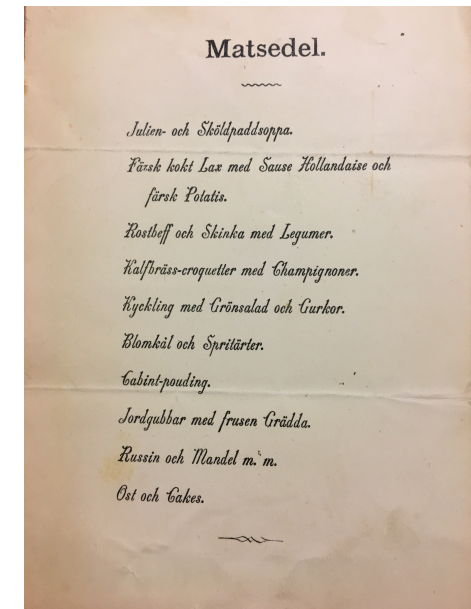 Matsedel.
Julien- och Sköldpaddsoppa.
Färsk kokt Lax med Sause Hollandaise och
färsk Potatis.
Rostbeff och Skinka med Legumer.
Kalfbräss-croquetter med Champignoner.
Kyckling med Grönsalad och Gurkor.
Blomkål och Spritärter.
Cabint-pouding.
Jordgubbar med frusen Grädda.
Russin och Mandel m. m.
Ost och Cakes.